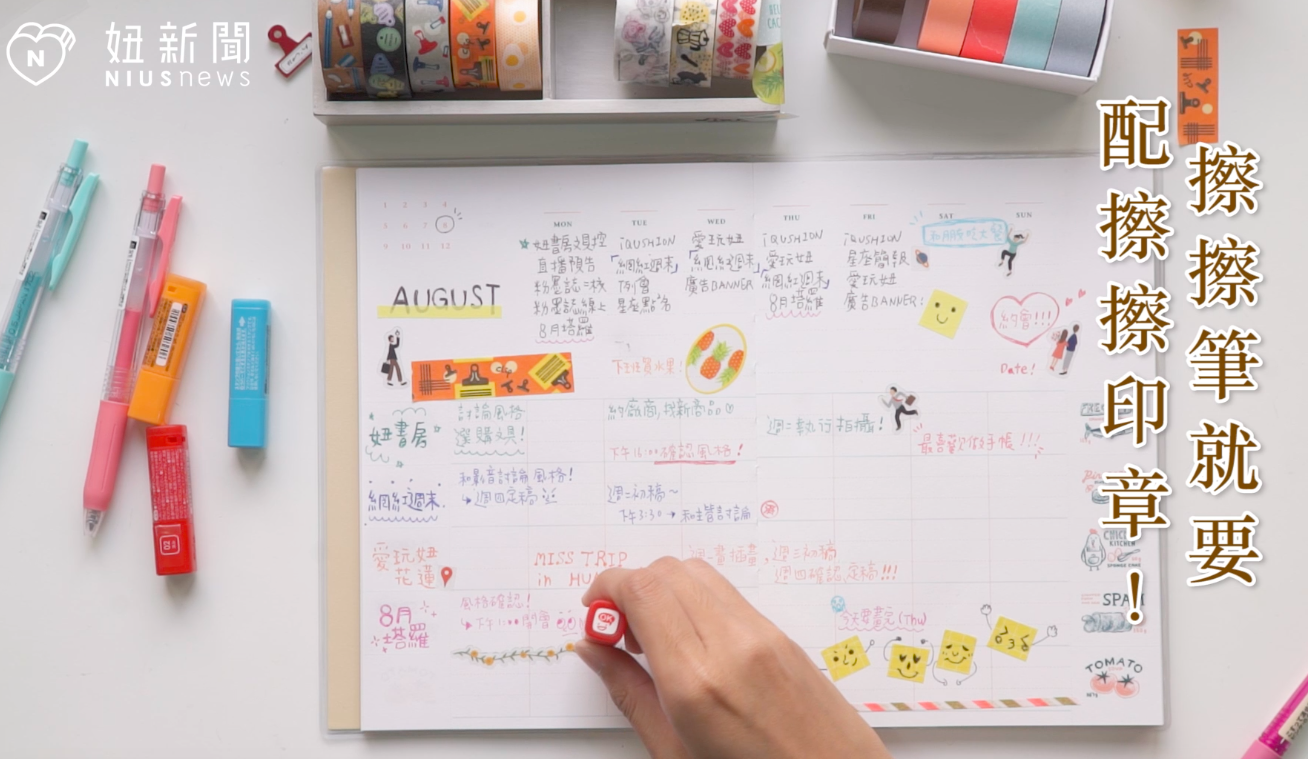 妞新聞
NIUSnews
擦擦筆就要
配擦擦印章！
1 2 3 4
5 6 7 8
9 10 11 12
MON TUE WED THU FRI SAT SUN
AUGUST
妞書房文具控
直播預告
粉墨誌=校
粉墨誌線上
8月塔羅
iQUSHION
「網紅週末」
T例會
星座點名
愛玩妞
「網紅週末」
廣告BANNER
iQUSHION
愛玩妞
「網紅週末」
8月塔羅
iQUSHION
星座簡報
愛玩妞
廣告BANNER:
約會!!!
Date!
下班買水果!
妞書房
討論風格
選購文具!
約廠商,找新商
下午16:00確認風格!
週二執行拍攝!
最喜歡做手帳!!!
網紅週末
和影音討論風格!
↳週四定稿
週二初稿~
下午3:30→和主管討論
愛玩妞
花蓮
MISS TRIP
in HU
週一畫插畫,週三初稿
週四確認定稿!!!
8月
塔羅
風格確認!
↳下午11:00開會
今天要畫完(Thu)
OK
CHICKEN
KITCHEN
SPA
TOMATO